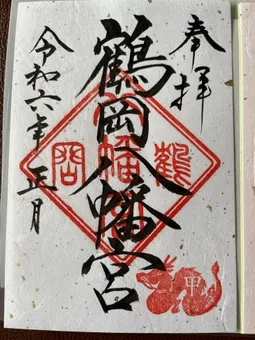 奉拝
鶴岡八幡宮
令和六年 正月
鶴
幡
岡
甲